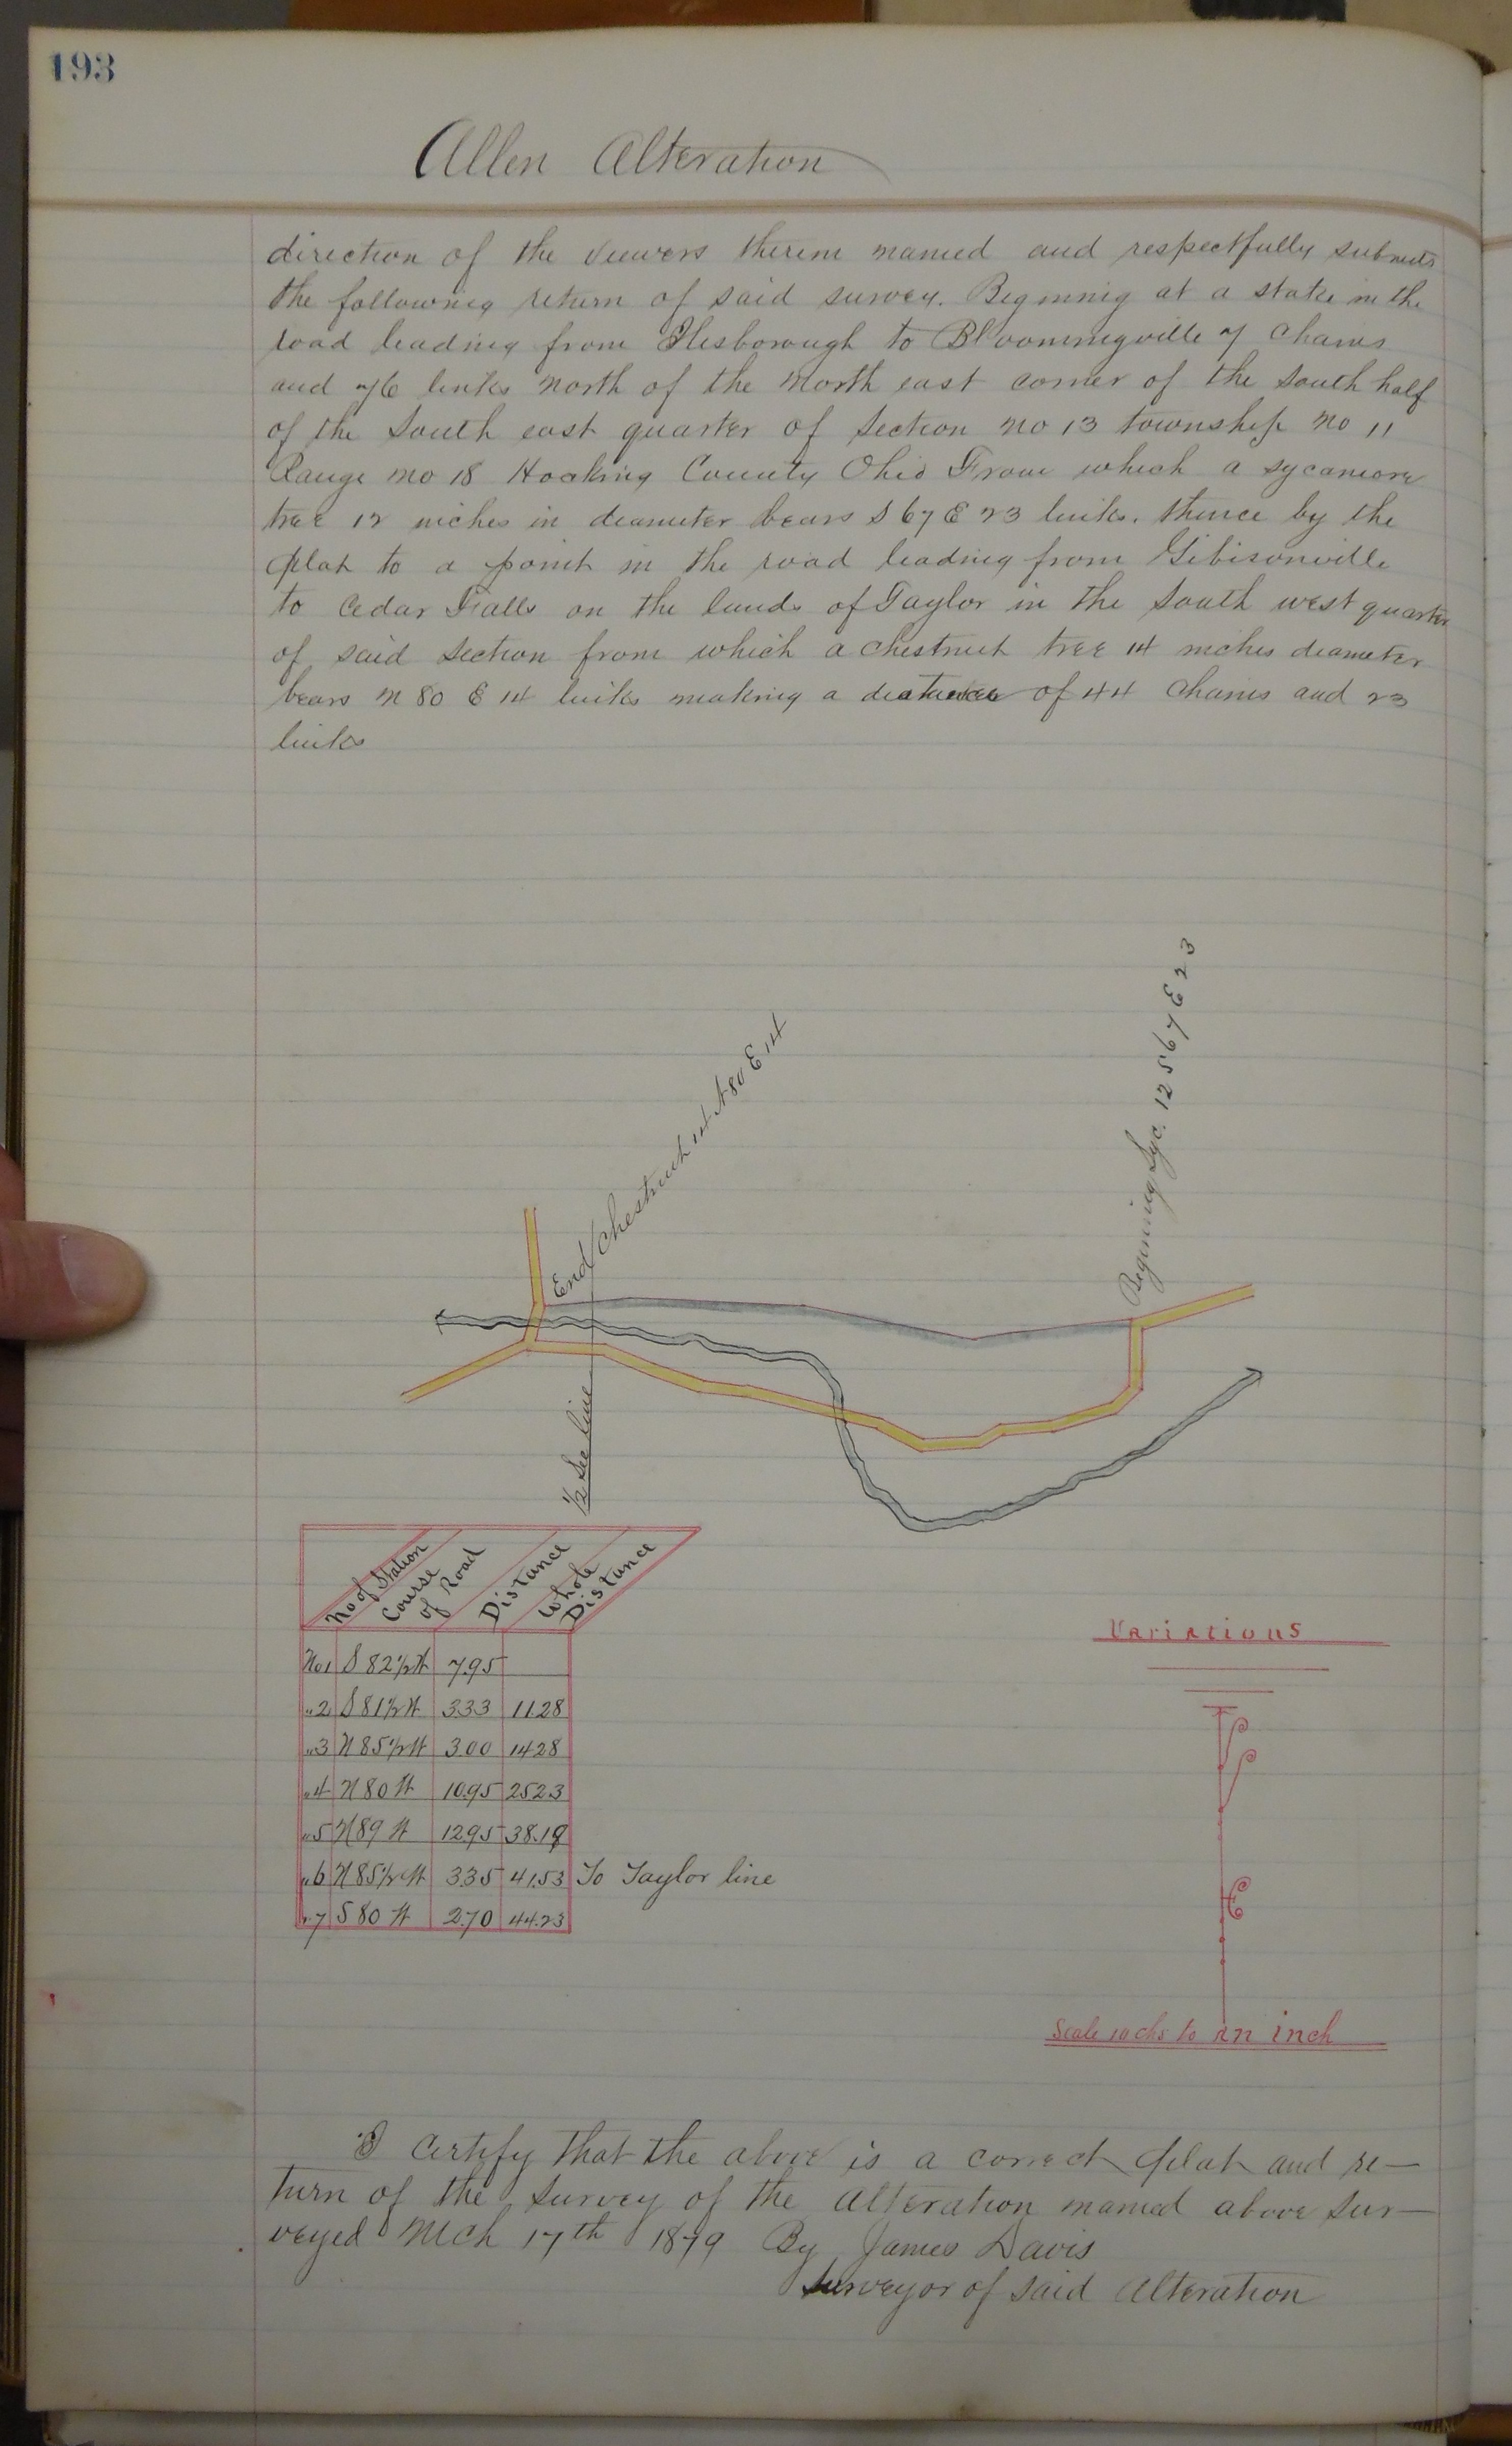 193
Allen Alteration
direction of the viewers therein named and respectfully submits
the following return of said survey. Beginning at a stake in the
road leading from Ilesborough to Bloomingville 7 chains
and 76 links north of the north east corner of the south half
of the South east quarter of Section no 13 township no 11
Range no 18 Hocking County Ohio From which a sycamore
tree 12 inches in diameter bears S 67 E 23 links. thence by the
plat to a point in the road leading from Gibisonville
to Cedar Falls on the lands of Taylor in the South west quarter
of said Section from which a chestnut tree 14 inches diameter
bears N 80 E 14 links making a distance of 44 chains and 23
links
End Chestnut 14 N 80 E 14
Beginning Syc. 12 S 67 E 23
1/2 Sec line
No of Station Course of Road Distance Whole Distance
No 1 S 82 1/2 W 7.95
" 2 S 81 1/2 W 3.33 11.28
" 3 N 85 1/2 W 3.00 14.28
" 4 N 80 W 10.95 25.23
" 5 N 89 W 12.95 38.18
" 6 N 85 1/2 W 3.35 41.53 To Taylor line
" 7 S 80 W 2.70 44.23
Variations
Scale 10 chs to an inch
I certify that the above is a correct plat and re-
turn of the survey of the alteration named above sur-
veyed Mch 17th 1879 By James Davis
Surveyor of said Alteration